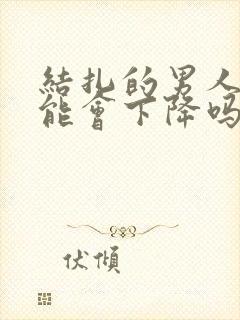 結扎的男人
能會下降吗
伏傾